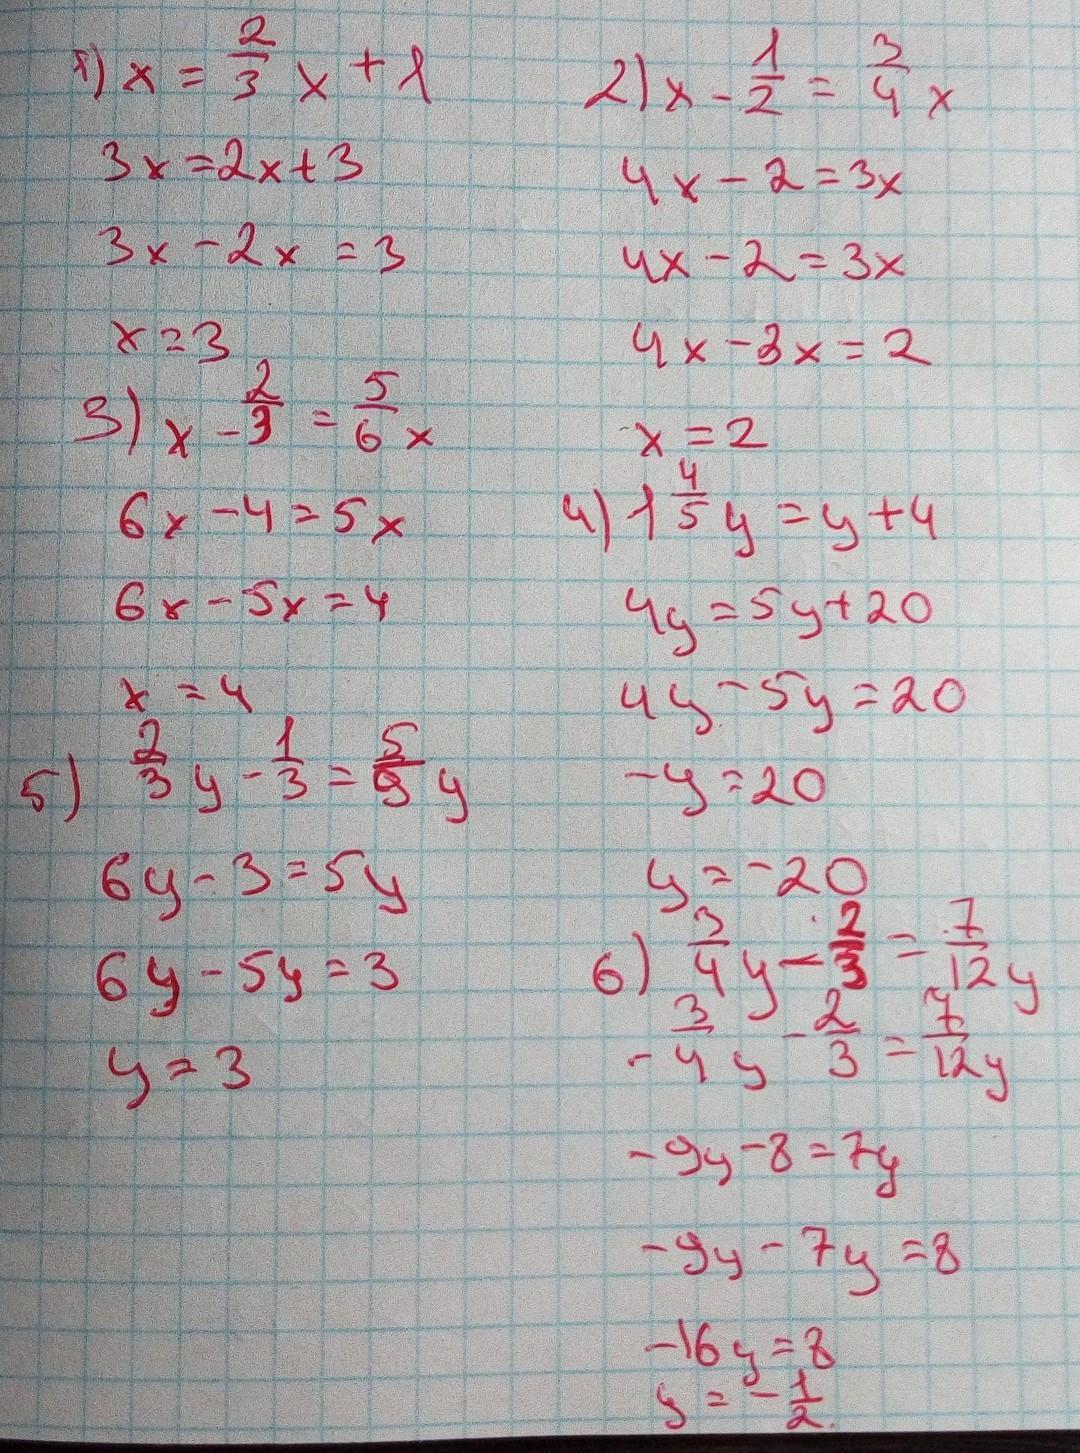 1) x = 2/3 x + 1
3x = 2x + 3
3x - 2x = 3
x = 3
2) x - 1/2 = 3/4 x
4x - 2 = 3x
4x - 2 = 3x
4x - 3x = 2
x = 2
3) x - 2/3 = 5/6 x
6x - 4 = 5x
6x - 5x = 4
x = 4
4) 1 4/5 y = y + 4
4y = 5y + 20
4y - 5y = 20
-y = 20
y = -20
5) 2/3 y - 1/3 = 5/9 y
6y - 3 = 5y
6y - 5y = 3
y = 3
6) 3/4 y - 2/3 = 7/12 y
- 3/4 y - 2/3 = 7/12 y
-9y - 8 = 7y
-9y - 7y = 8
-16y = 8
y = - 1/2.